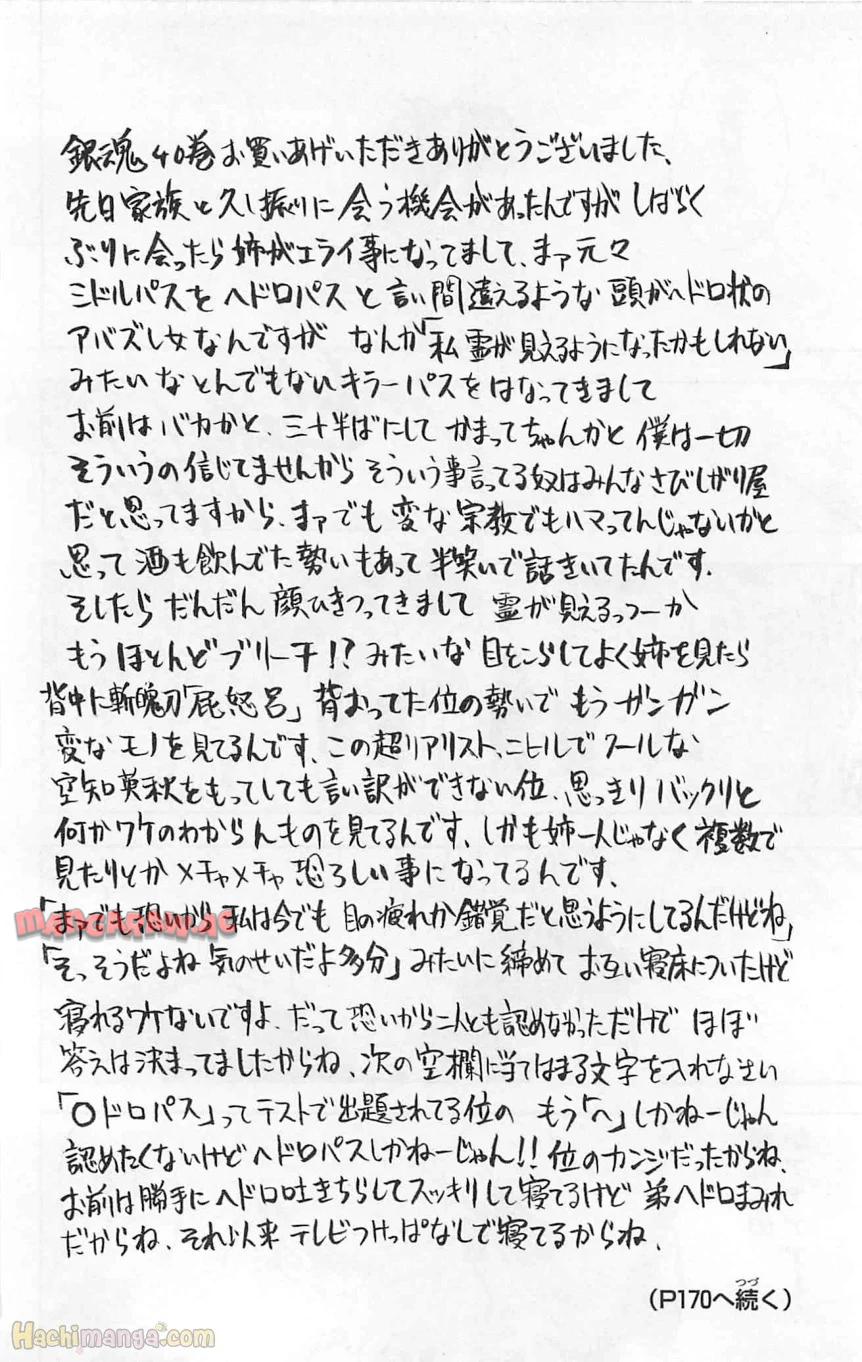 銀魂40巻お買いあげいただきありがとうございました、
先日家族と久し振りに会う機会があったんですが しばらく
ぶりに会ったら姉がエライ事になってまして、まァ元々
ミドルパスをヘドロパスと言い間違えるような頭がヘドロ状の
アバズレ女なんですが なんか「私霊が見えるようになったかもしれない」
みたいなとんでもないキラーパスをはなってきまして
お前はバカかと、三十半ばにして かまってちゃんかと 僕は一切
そういうの信じてませんから そういう事言ってる奴はみんなさびしがり屋
だと思ってますから、まァでも変な宗教でもハマってんじゃないかと
思って酒も飲んでた勢いもあって半笑いで話きいてたんです、
そしたらだんだん顔ひきつってきまして 霊が見えるっつーか
もうほとんどブリーチ!?みたいな 目をこらしてよく姉を見たら
背中に斬魄刀「屁怒呂」背おってた位の勢いで もうガンガン
変なモノを見てるんです、この超リアリスト、ニヒルでクールな
空知英秋をもってしても言い訳ができない位、思っきりバックリと
何かワケのわからんものを見てるんです、しかも姉一人じゃなく複数で
見たりとかメチャメチャ恐ろしい事になってるんです、
「まァでも恐いから私は今でも目の疲れか錯覚だと思うようにしてるんだけどね」
「そっそうだよね気のせいだよ多分」みたいに締めてお互い寝床についたけど
寝れるワケないですよ、だって恐いから二人とも認めなかっただけで ほぼ
答えは決まってましたからね、次の空欄に当てはまる文字を入れなさい
「〇ドロパス」ってテストで出題されてる位の もう「ヘ」しかねーじゃん
認めたくないけどヘドロパスしかねーじゃん!!位のカンジだったからね、
お前は勝手にヘドロ吐きちらしてスッキリして寝てるけど 弟ヘドロまみれ
だからね、それ以来テレビつけっぱなしで寝てるからね、
(P170へ続く)
つづ
mangarawjac
Hachimanga.com